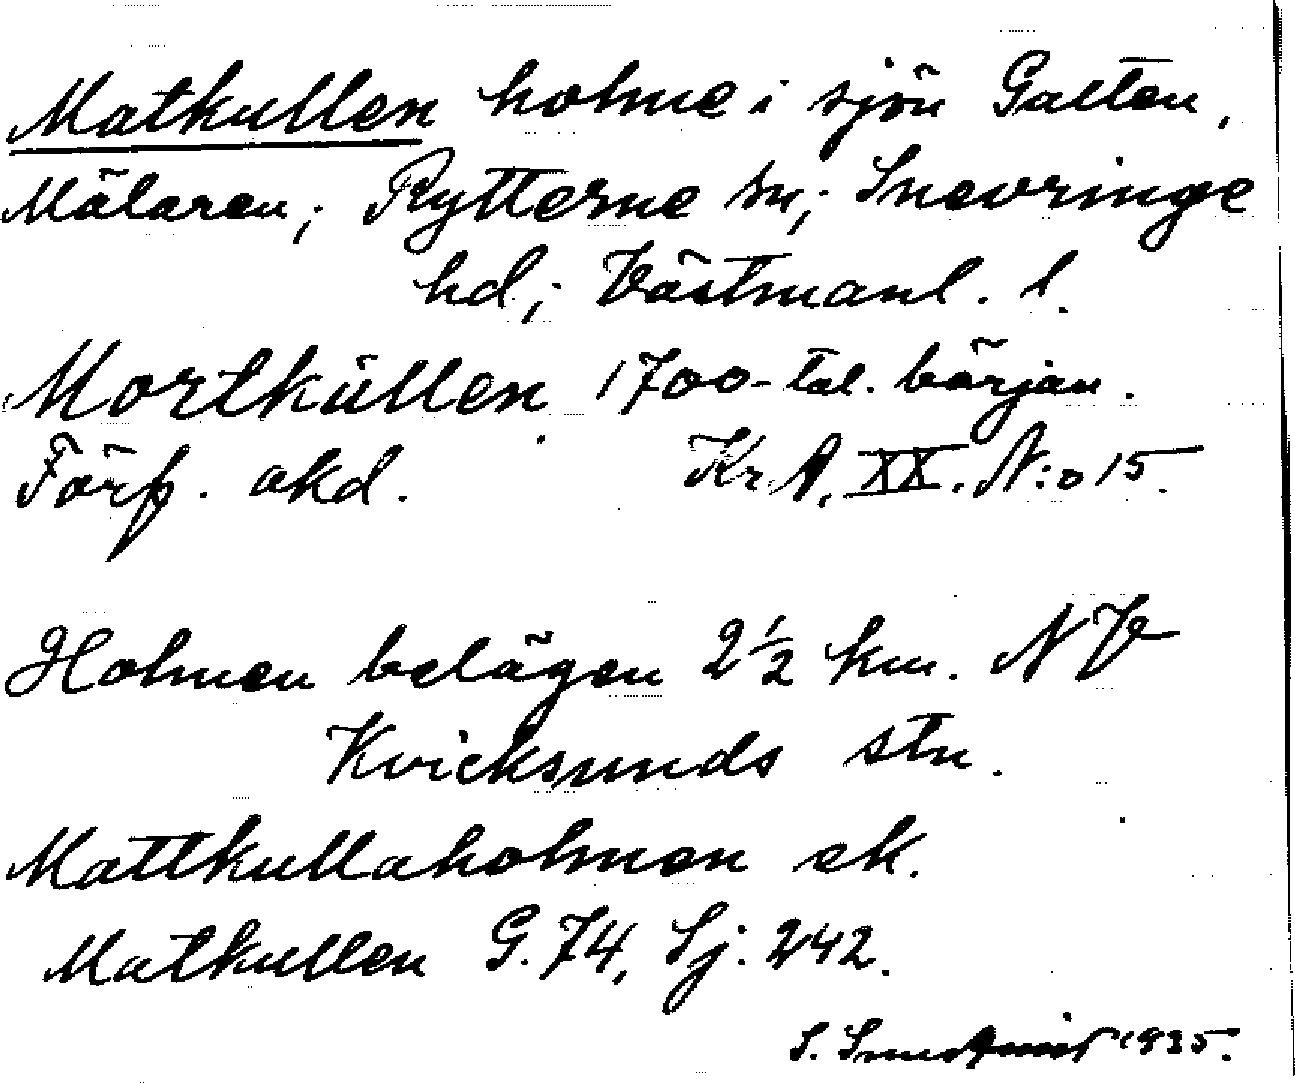 Matkullen holme i sjön Galten,
Mälaren; Rytterne sn; Snevringe
hd; Västmanl. l.
Mortkullen 1700-tal. början.
Förf. okd. Kr A. XX. N:o 15.
Holmen belägen 2 1/2 km. NV
Kvicksunds stn.
Mattkullaholmen ek.
Matkullen G. 74, Sj: 242.
S. 1935.